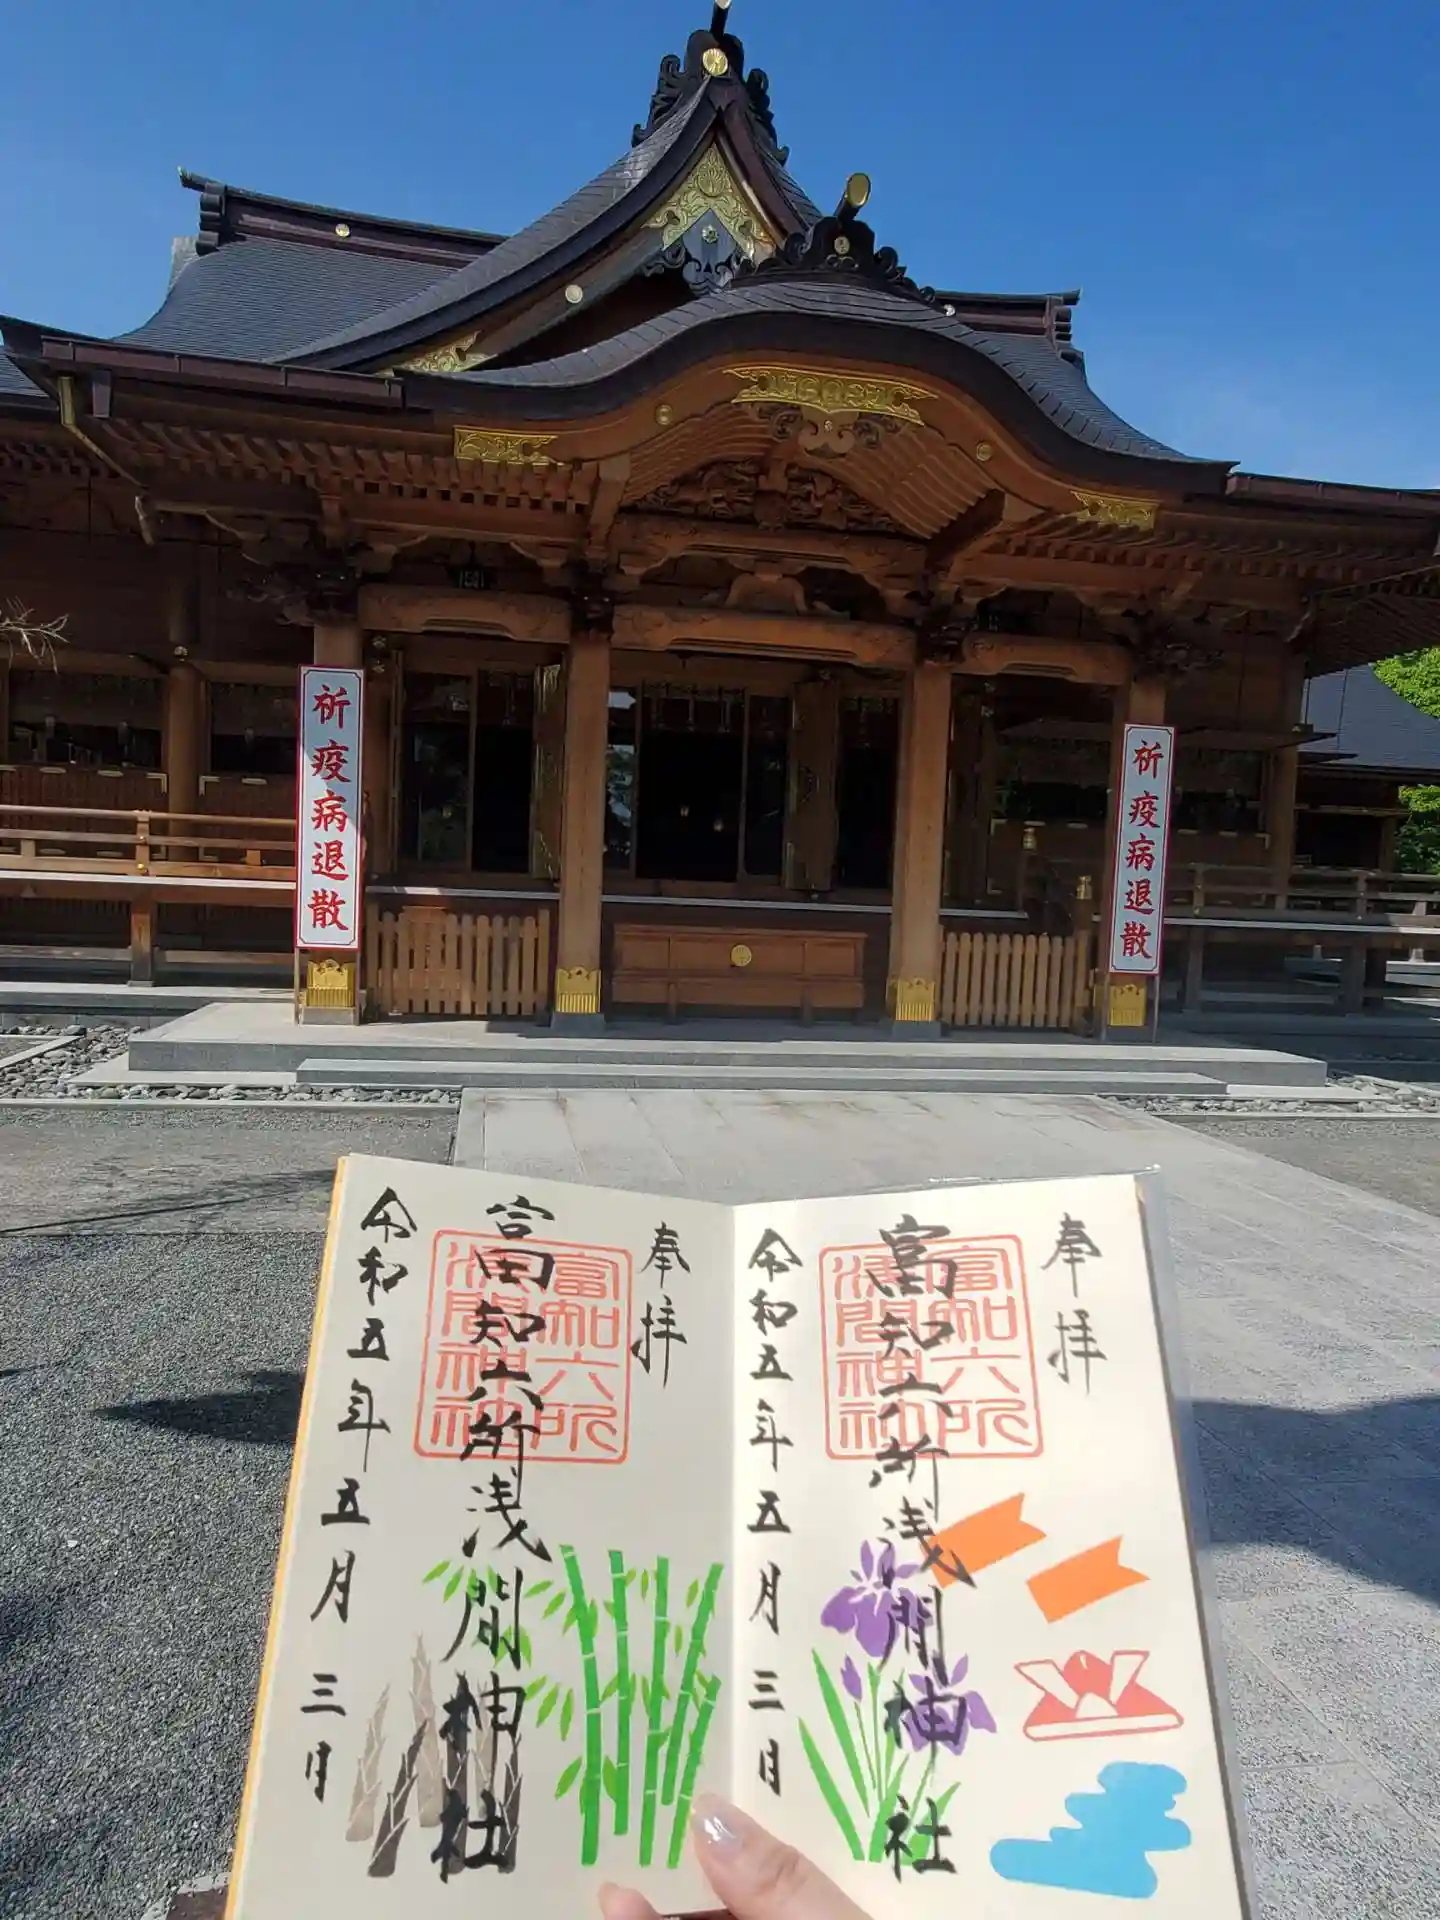 祈疫病退散
祈疫病退散
奉拝
富知六所浅間神社
令和五年五月三日
富知六所
浅間神社
奉拝
富知六所浅間神社
令和五年五月三日
富知六所
浅間神社